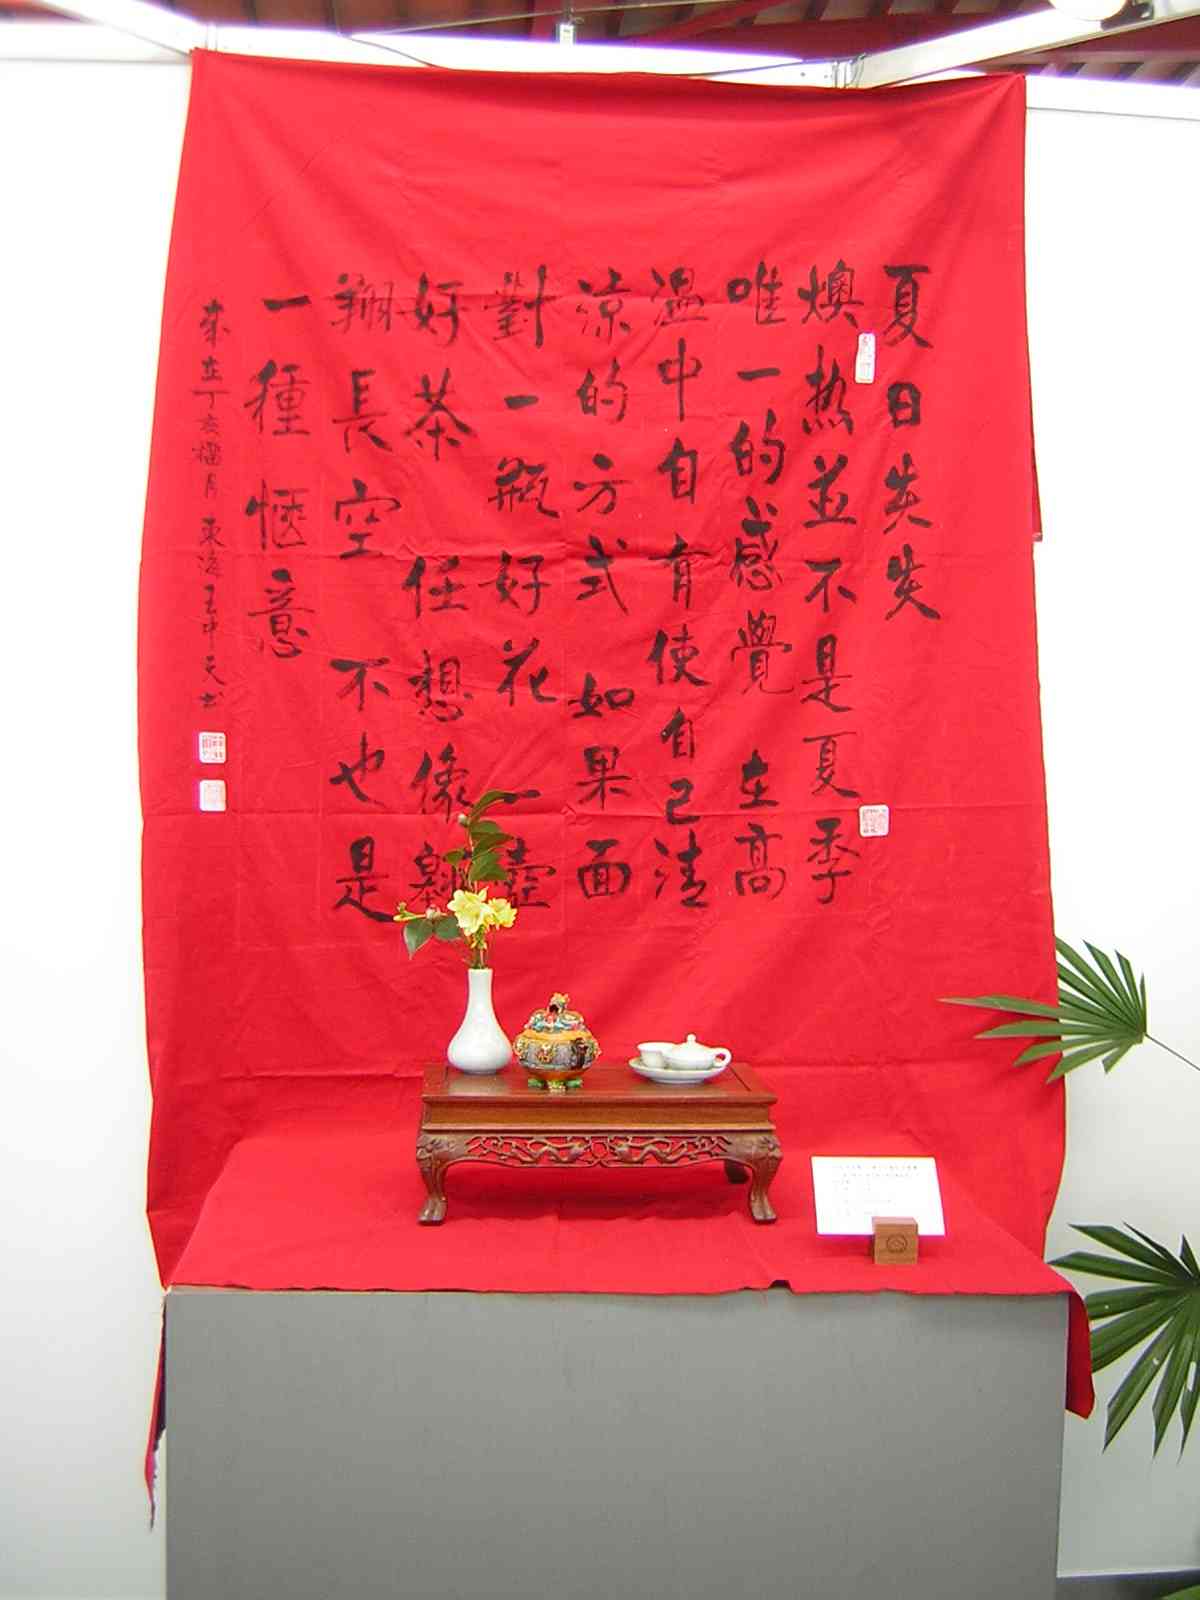 夏日炎炎
燠热並不是夏季
唯一的感覺 在高
温中自有使自己清
涼的方式 如果面
對一瓶好花 一壺
好茶 任想像翱
翔長空 不也是
一種愜意
歲在丁亥榴月 東海王中天书